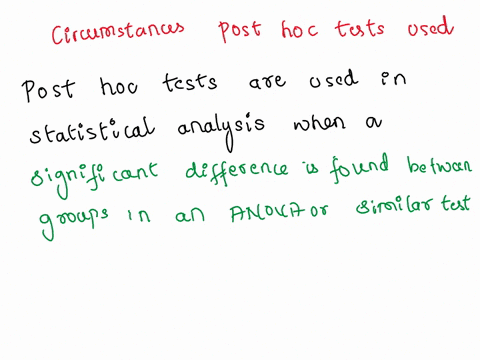 Circumstances post hoc tests used
Post hoc tests are used in
statistical analysis when a
significant difference is found between
groups in an ANOVA or similar test